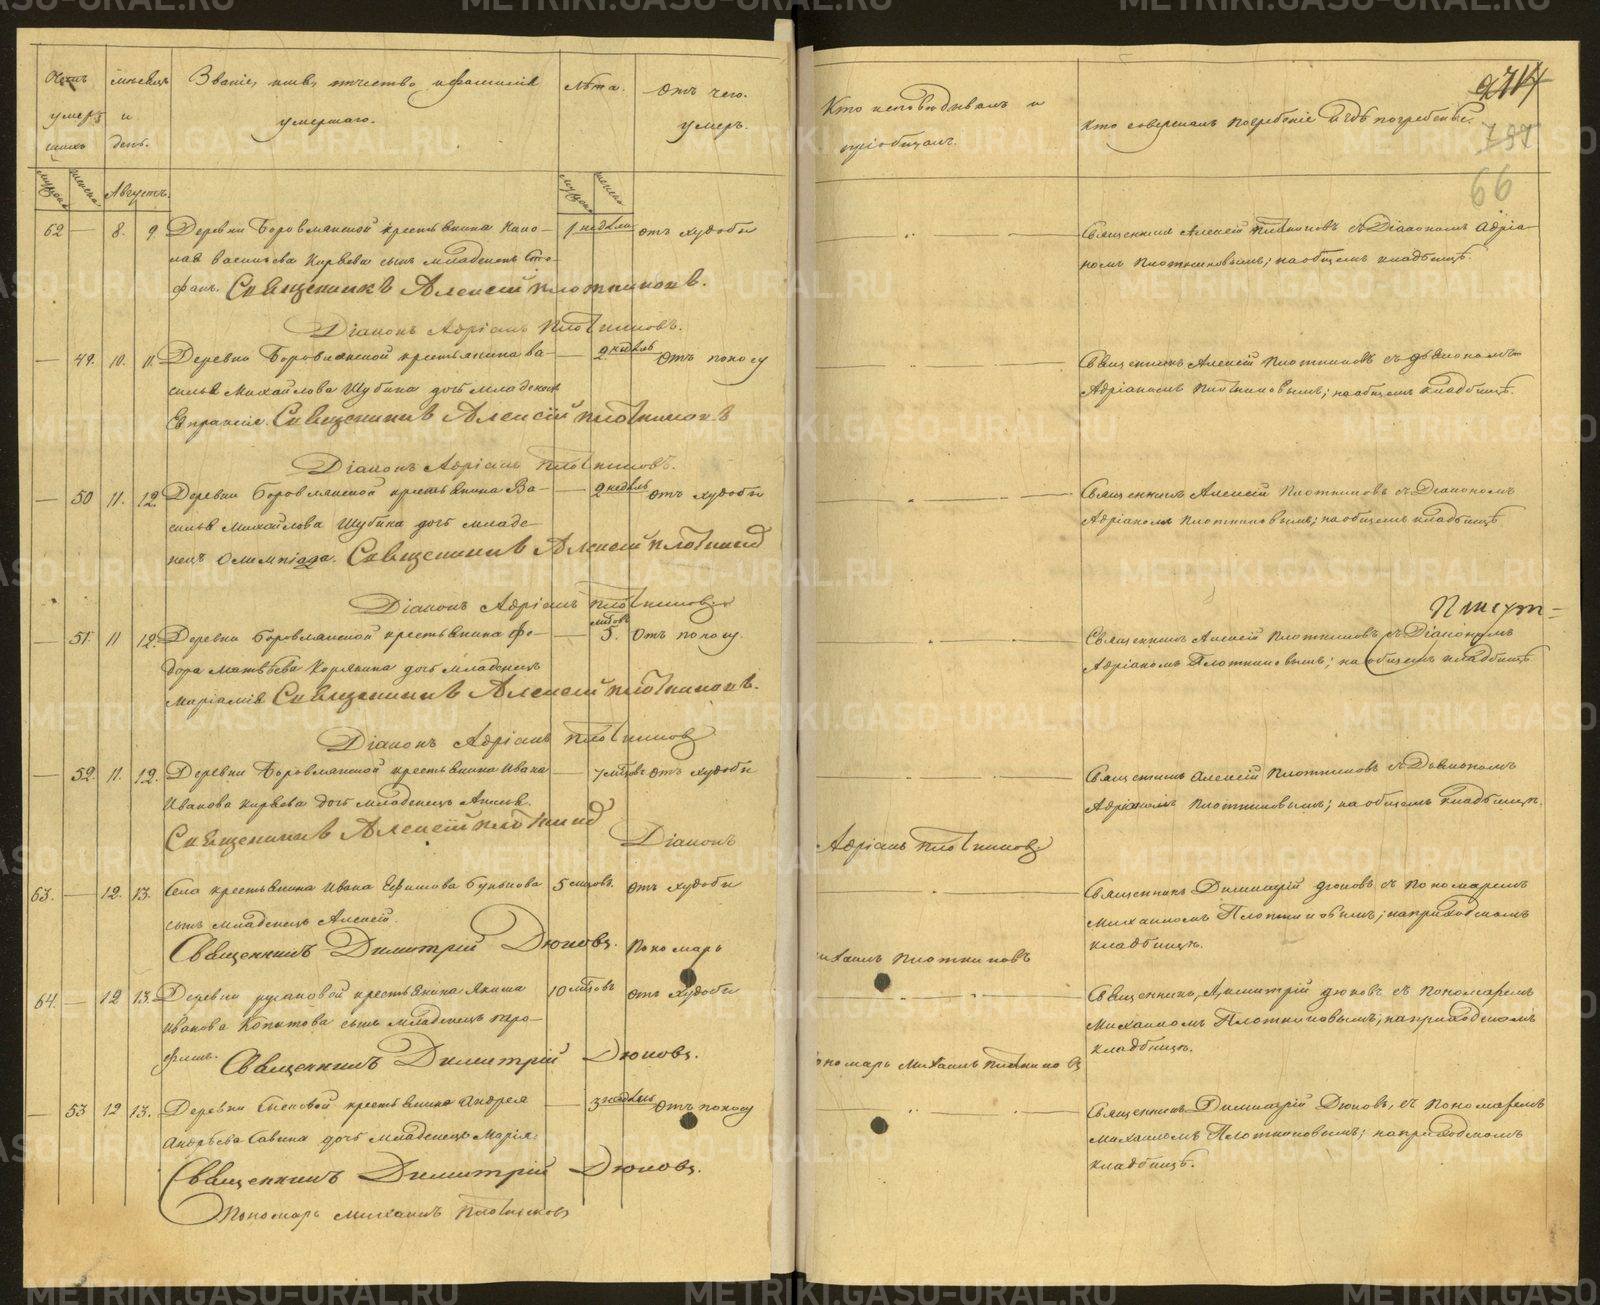 Счетъ умершихъ
Мѣсяцъ и день.
Званіе, имя, отчество, и фамилія умершаго.
Лѣта.
Отъ чего умеръ.
Кто исповѣдывалъ и пріобщалъ.
Кто совершалъ погребеніе и гдѣ погребены.
274
737
66
Мужска
Женска
Августъ.
Мужска
Женска
62 — 8. 9. Деревни Боровлянской крестьянина
Васильева Кирѣева сынъ младенецъ Сте-
фанъ. Священникъ Алексей Плотниковъ.
1 недѣли отъ худобы
Священникъ Алексей Плотниковъ съ Діакономъ Адріа-
номъ Плотниковымъ; на общемъ кладбищѣ.
Діаконъ Адріанъ Плотниковъ.
— 49. 10. 11. Деревни Боровлянской крестьянина Ва-
силья Михайлова Шубина дочь младенецъ
Евпраксія. Священникъ Алексей Плотниковъ
2 недѣль отъ поносу
Священникъ Алексей Плотниковъ съ Діакономъ
Адріаномъ Плотниковымъ; на общемъ кладбищѣ.
Діаконъ Адріанъ Плотниковъ.
— 50 11. 12. Деревни Боровлянской крестьянина Ва-
силья Михайлова Шубина дочь младе-
нецъ Олимпіада. Священникъ Алексей Плотниковъ
2 недѣль отъ худобы
Священникъ Алексей Плотниковъ съ Діакономъ
Адріаномъ Плотниковымъ; на общемъ кладбищѣ
Діаконъ Адріанъ Плотниковъ
— 51 11 12. Деревни Боровлянской крестьянина Фе-
дора Матвѣева Корякина дочь младенецъ
Маріамія Священникъ Алексей Плотниковъ.
5. мѣсцовъ отъ поносу.
Священникъ Алексей Плотниковъ съ Діакономъ
Адріаномъ Плотниковымъ; на общемъ кладбищѣ
Діаконъ Адріанъ Плотниковъ
— 52. 11. 12. Деревни Боровлянской крестьянина Ивана
Иванова Кирѣева дочь младенецъ
Священникъ Алексій Плотниковъ
7 мѣсцовъ отъ худобы
Священникъ Алексей Плотниковъ съ Дьякономъ
Адріаномъ Плотниковымъ; на общемъ кладбищѣ.
Діаконъ Адріанъ Плотниковъ
63. — 12. 13. Села крестьянина Ивана Ефимова Бунькова
сынъ младенецъ Алексей.
Священникъ Димитрій Дюковъ. Пономарь Михаилъ Плотниковъ
5 мѣсцовъ. отъ худобы
Священникъ Димитрій Дюковъ съ Пономаремъ
Михаиломъ Плотниковымъ; на приходскомъ
кладбищѣ.
64. — 12 13. Деревни Русаковой крестьянина Якима
Иванова Копытова сынъ младенецъ Тро-
фимъ. Священникъ Димитрій Дюковъ.
10 мѣсцовъ отъ худобы
Священникъ Димитрій Дюковъ съ Пономаремъ
Михаиломъ Плотниковымъ; на приходскомъ
кладбищѣ.
Пономарь Михаилъ Плотниковъ
— 53 12 13. Деревни крестьянина Андрея
Андрѣева Савина дочь младенецъ Марія.
Священникъ Димитрій Дюковъ.
Пономарь Михаилъ Плотниковъ
3 недѣль отъ поносу
Священникъ Димитрій Дюковъ, съ Пономаремъ
Михаиломъ Плотниковымъ; на приходскомъ
кладбищѣ.
METRIKI.GASO-URAL.RU